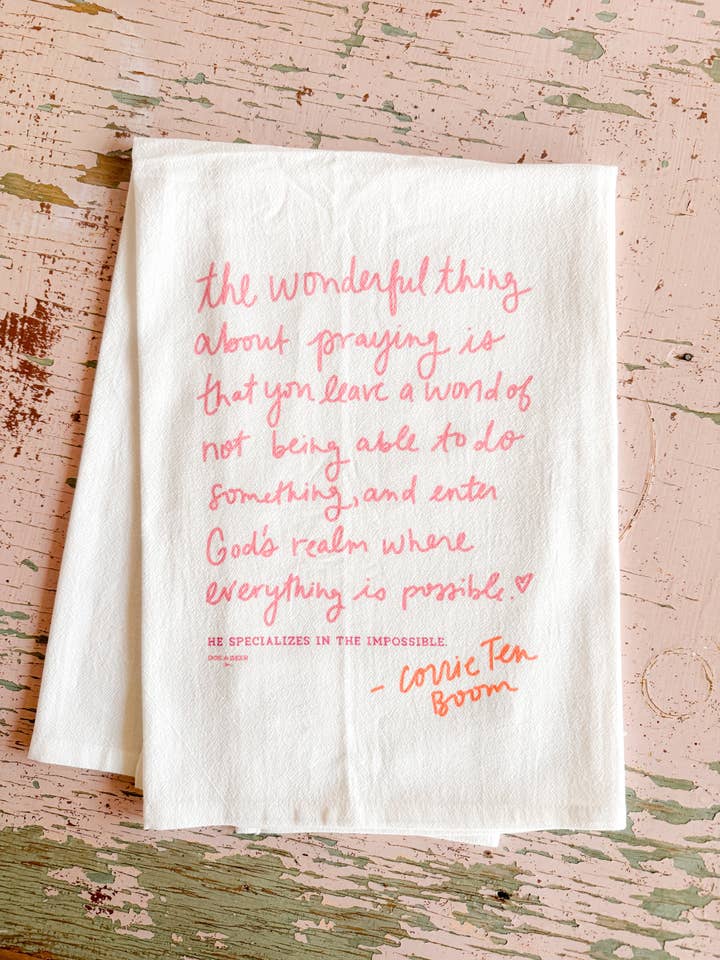 the wonderful thing
about praying is
that you leave a world of
not being able to do
something, and enter
God's realm where
everything is possible.♡
HE SPECIALIZES IN THE IMPOSSIBLE.
- Corrie Ten
Boom